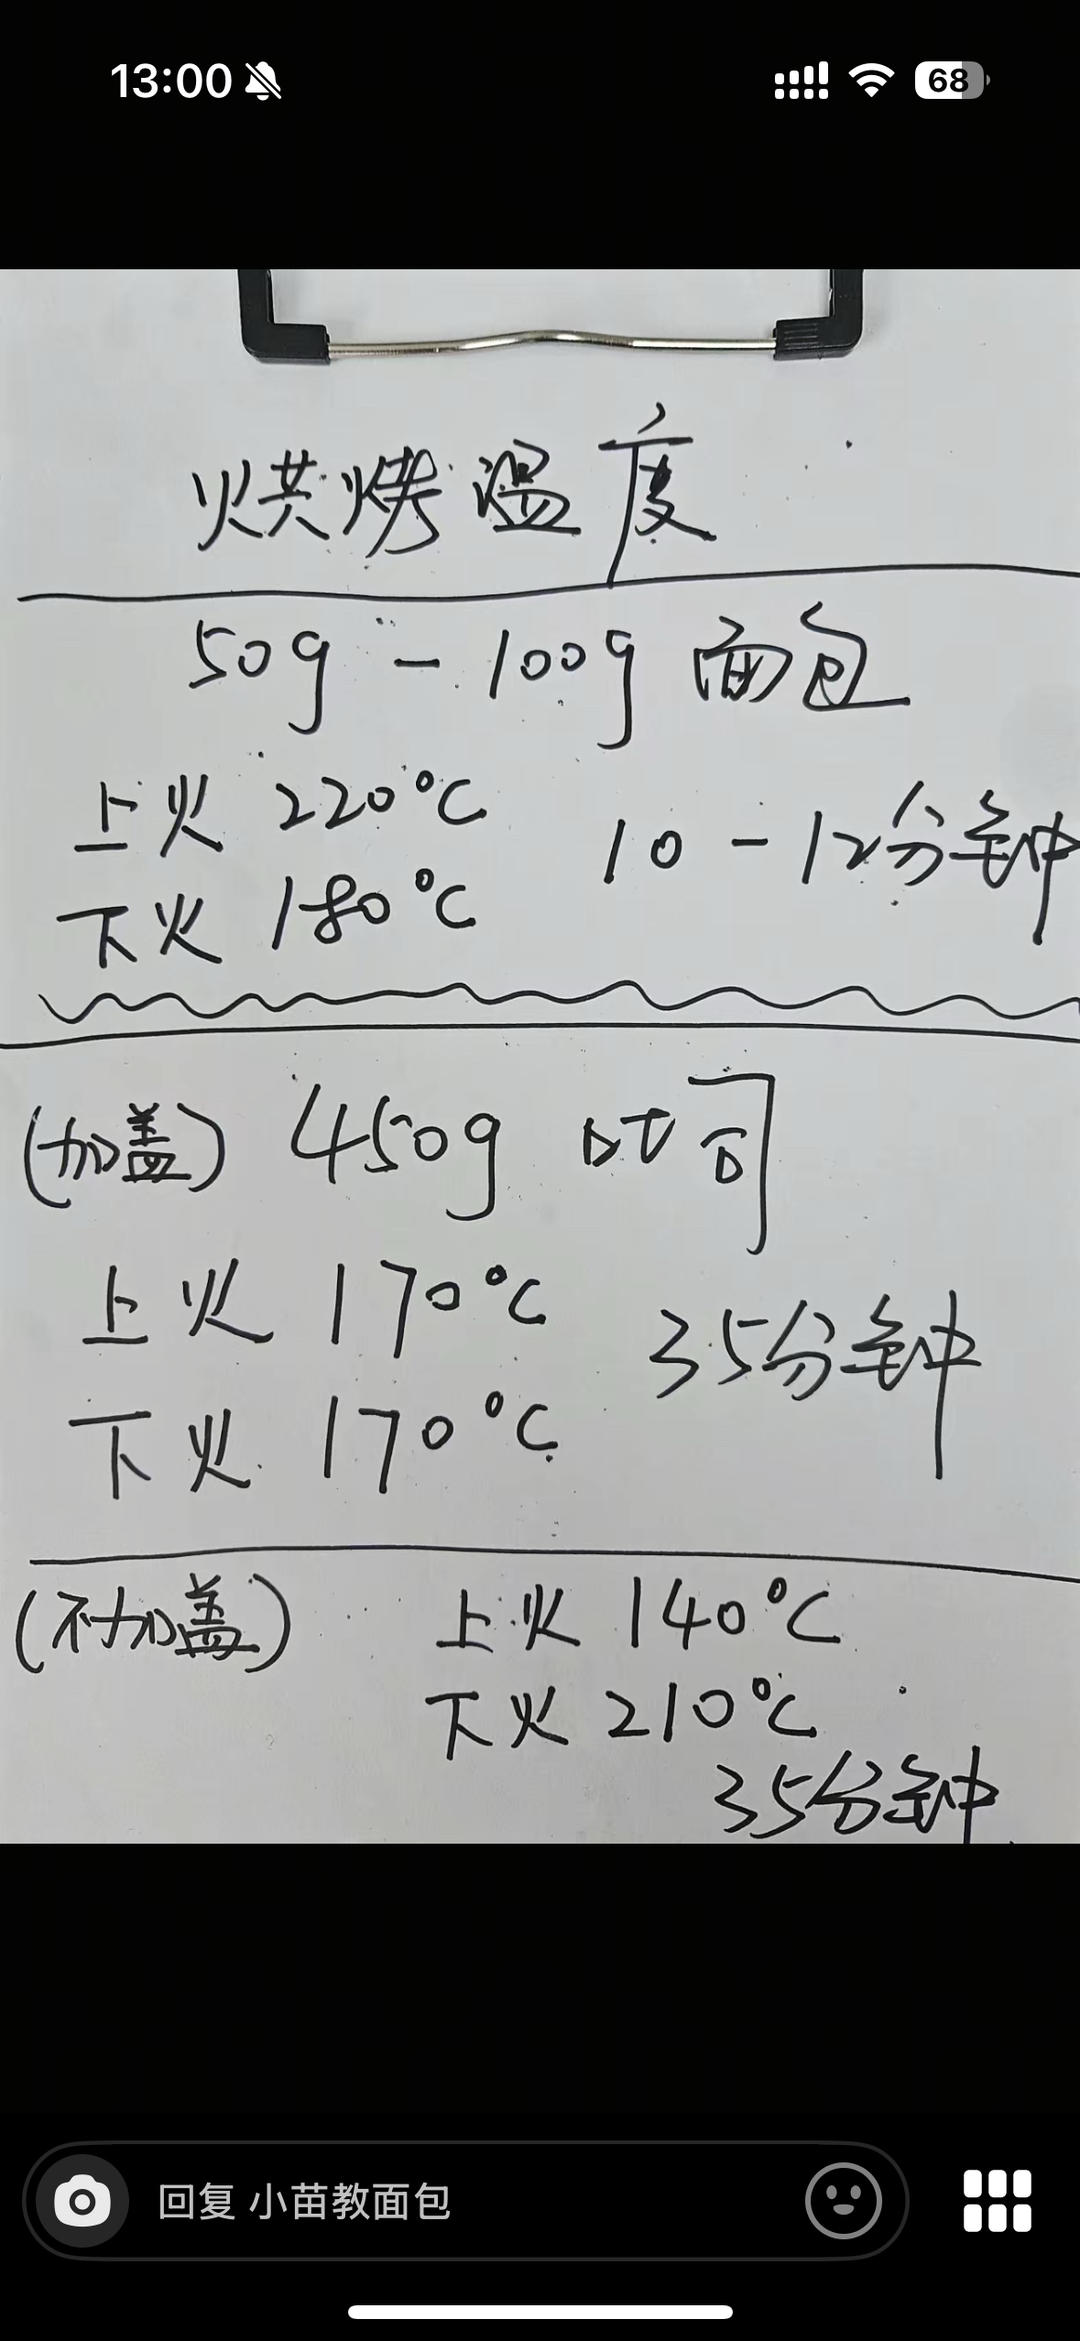 13:00
68
烘烤温度
50g - 100g 面包
上火 220°C
10 - 12分钟
下火 180°C
(加盖) 450g 吐司
上火 170°C
35分钟
下火 170°C
(不加盖) 上火 140°C
下火 210°C
35分钟
回复 小苗教面包